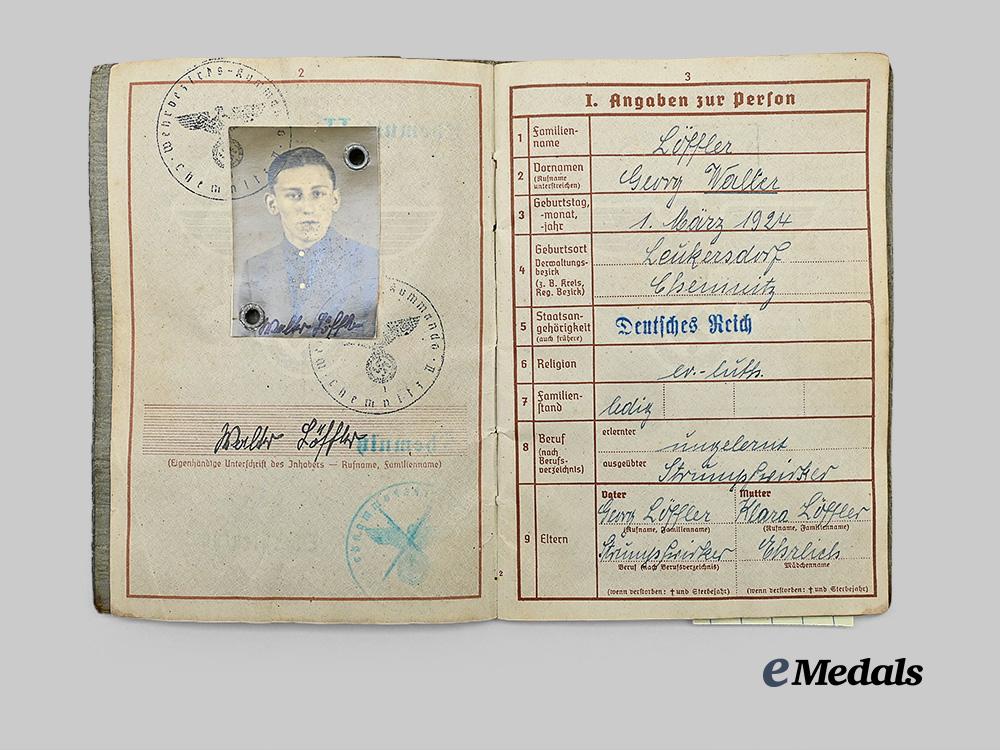 2
Wehrbezirks-Kommando
Chemnitz II
Walter Löffler
Kommando
Chemnitz II.
Walter Löffler
(Eigenhändige Unterschrift des Inhabers — Rufname, Familienname)
3
I. Angaben zur Person
1 Familien-
name
Löffler
2 Vornamen
(Rufname
unterstreichen)
Georg Walter
3 Geburtstag,
-monat,
-jahr
1. März 1924
4 Geburtsort
Verwaltungs-
bezirk
(z. B. Kreis,
Reg. Bezirk)
Leukersdorf
Chemnitz
5 Staatsan-
gehörigkeit
(auch frühere)
Deutsches Reich
6 Religion
ev.-luth.
7 Familien-
stand
ledig
8 Beruf
(nach
Berufs-
verzeichnis)
erlernter
ungelernt
ausgeübter
Strumpfwirker
9 Eltern
Vater Mutter
Georg Löffler Klara Löffler
(Rufname, Familienname) (Rufname, Familienname)
Strumpfwirker Ehrlich
Beruf (nach Berufsverzeichnis) Mädchenname
(wenn verstorben: † und Sterbejahr) (wenn verstorben: † und Sterbejahr)
2
eMedals